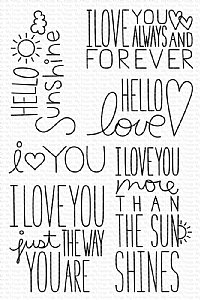 HELLO
Sunshine
I LOVE YOU
ALWAYS AND
FOREVER
HELLO
love
i ♡ YOU
I LOVE YOU
just THE WAY
YOU ARE
I LOVE YOU
more
THAN
THE SUN
SHINES